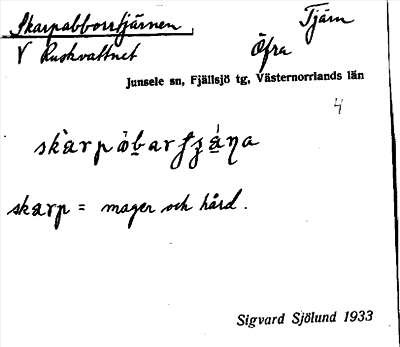 Skarpabborrtjärnen, Tjärn
V Ruskvattnet Öfra
Junsele sn, Fjällsjö tg, Västernorrlands län
4
skarp = mager och hård.
Sigvard Sjölund 1933